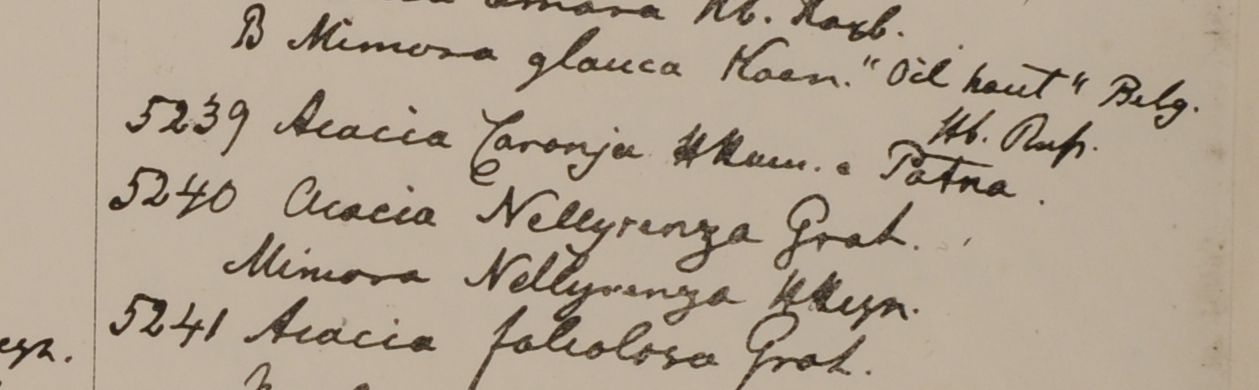 amara Hb. Roxb.
B Mimosa glauca Koen. "Oil haut" Belg.
Hb. Russ.
5239 Acacia Caronja HHam. e Patna.
5240 Acacia Nellyrenza Grah.
Mimosa Nellyrenza HHeyn.
5241 Acacia falcolosa Grah.